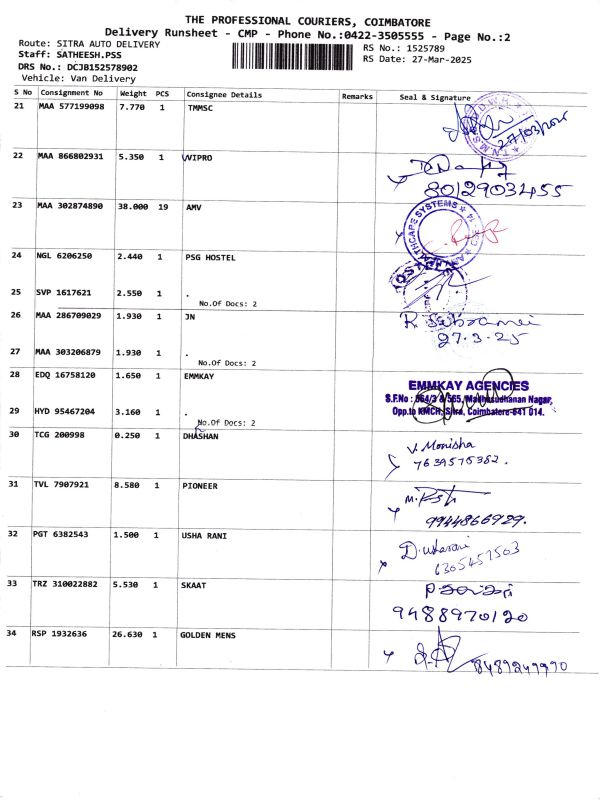 THE PROFESSIONAL COURIERS, COIMBATORE
Delivery Runsheet - CMP - Phone No.:0422-3505555 - Page No.:2
Route: SITRA AUTO DELIVERY
Staff: SATHEESH.PSS
RS No.: 1525789
DRS No.: DCJB152578902
RS Date: 27-Mar-2025
Vehicle: Van Delivery
S No Consignment No Weight PCS Consignee Details Remarks Seal & Signature
21 MAA 577199098 7.770 1 TMMSC
27/03/2025
22 MAA 866802931 5.350 1 WIPRO
8012903455
23 MAA 302874890 38.000 19 AMV
24 NGL 6206250 2.440 1 PSG HOSTEL
25 SVP 1617621 2.550 1 .
No.Of Docs: 2
26 MAA 286709029 1.930 1 JN
27.3.25
27 MAA 303206879 1.930 1 .
No.Of Docs: 2
28 EDQ 16758120 1.650 1 EMMKAY
EMMKAY AGENCIES
S.F.No : 564/3 & 565, Madhusudhanan Nagar,
Opp.to KMCH, Sitra, Coimbatore-641 014.
29 HYD 95467204 3.160 1 .
No.Of Docs: 2
30 TCG 200998 0.250 1 DHASHAN
V. Monisha
7639575382.
31 TVL 7907921 8.580 1 PIONEER
9944866929.
32 PGT 6382543 1.500 1 USHA RANI
D. usharani
6305457503
33 TRZ 310022882 5.530 1 SKAAT
9488970120
34 RSP 1932636 26.630 1 GOLDEN MENS
8489249990